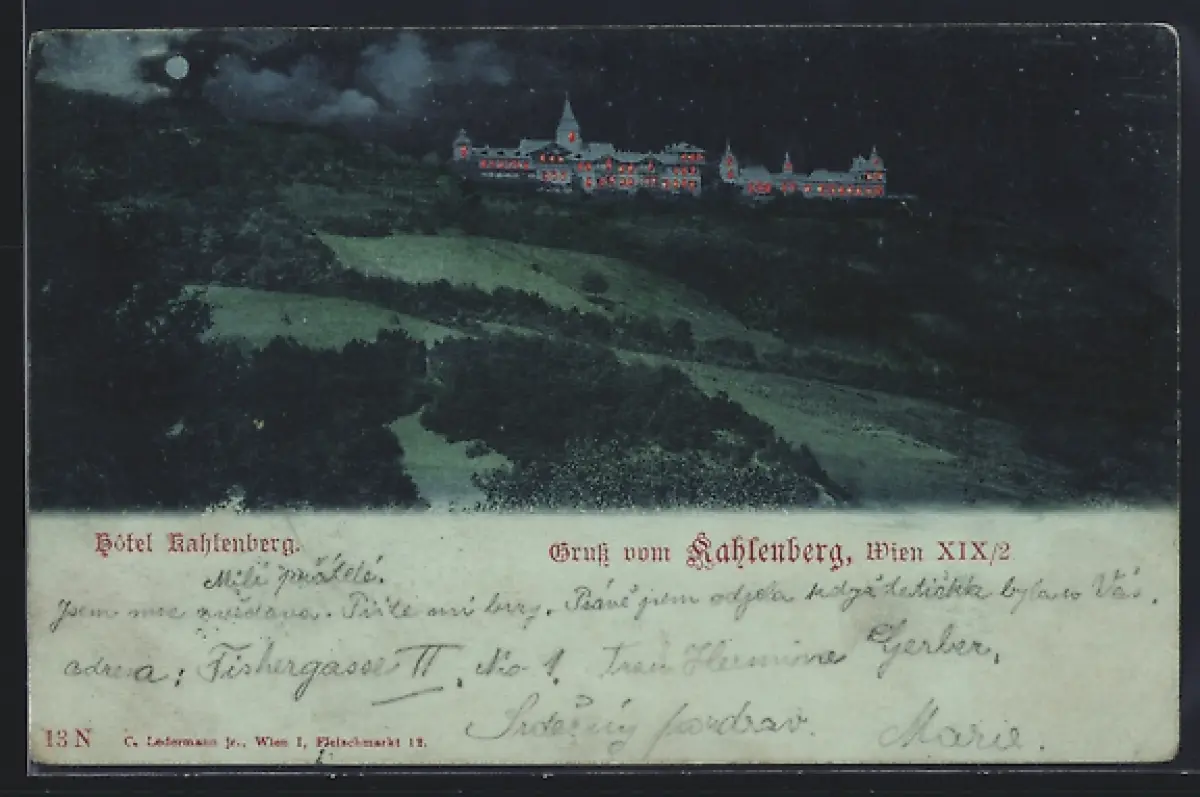 Hôtel Kahlenberg.
Gruß vom Kahlenberg, Wien XIX/2
Milí přátelé.
Jsem moc zvědava. Pište mi brzy. Právě jsem odjela když tetička byla u Vás.
adresa: Fishergasse II, No 1. Frau Hermine Gerber,
Srdečný pozdrav. Marie.
13 N C. Ledermann jr., Wien I, Fleischmarkt 12.